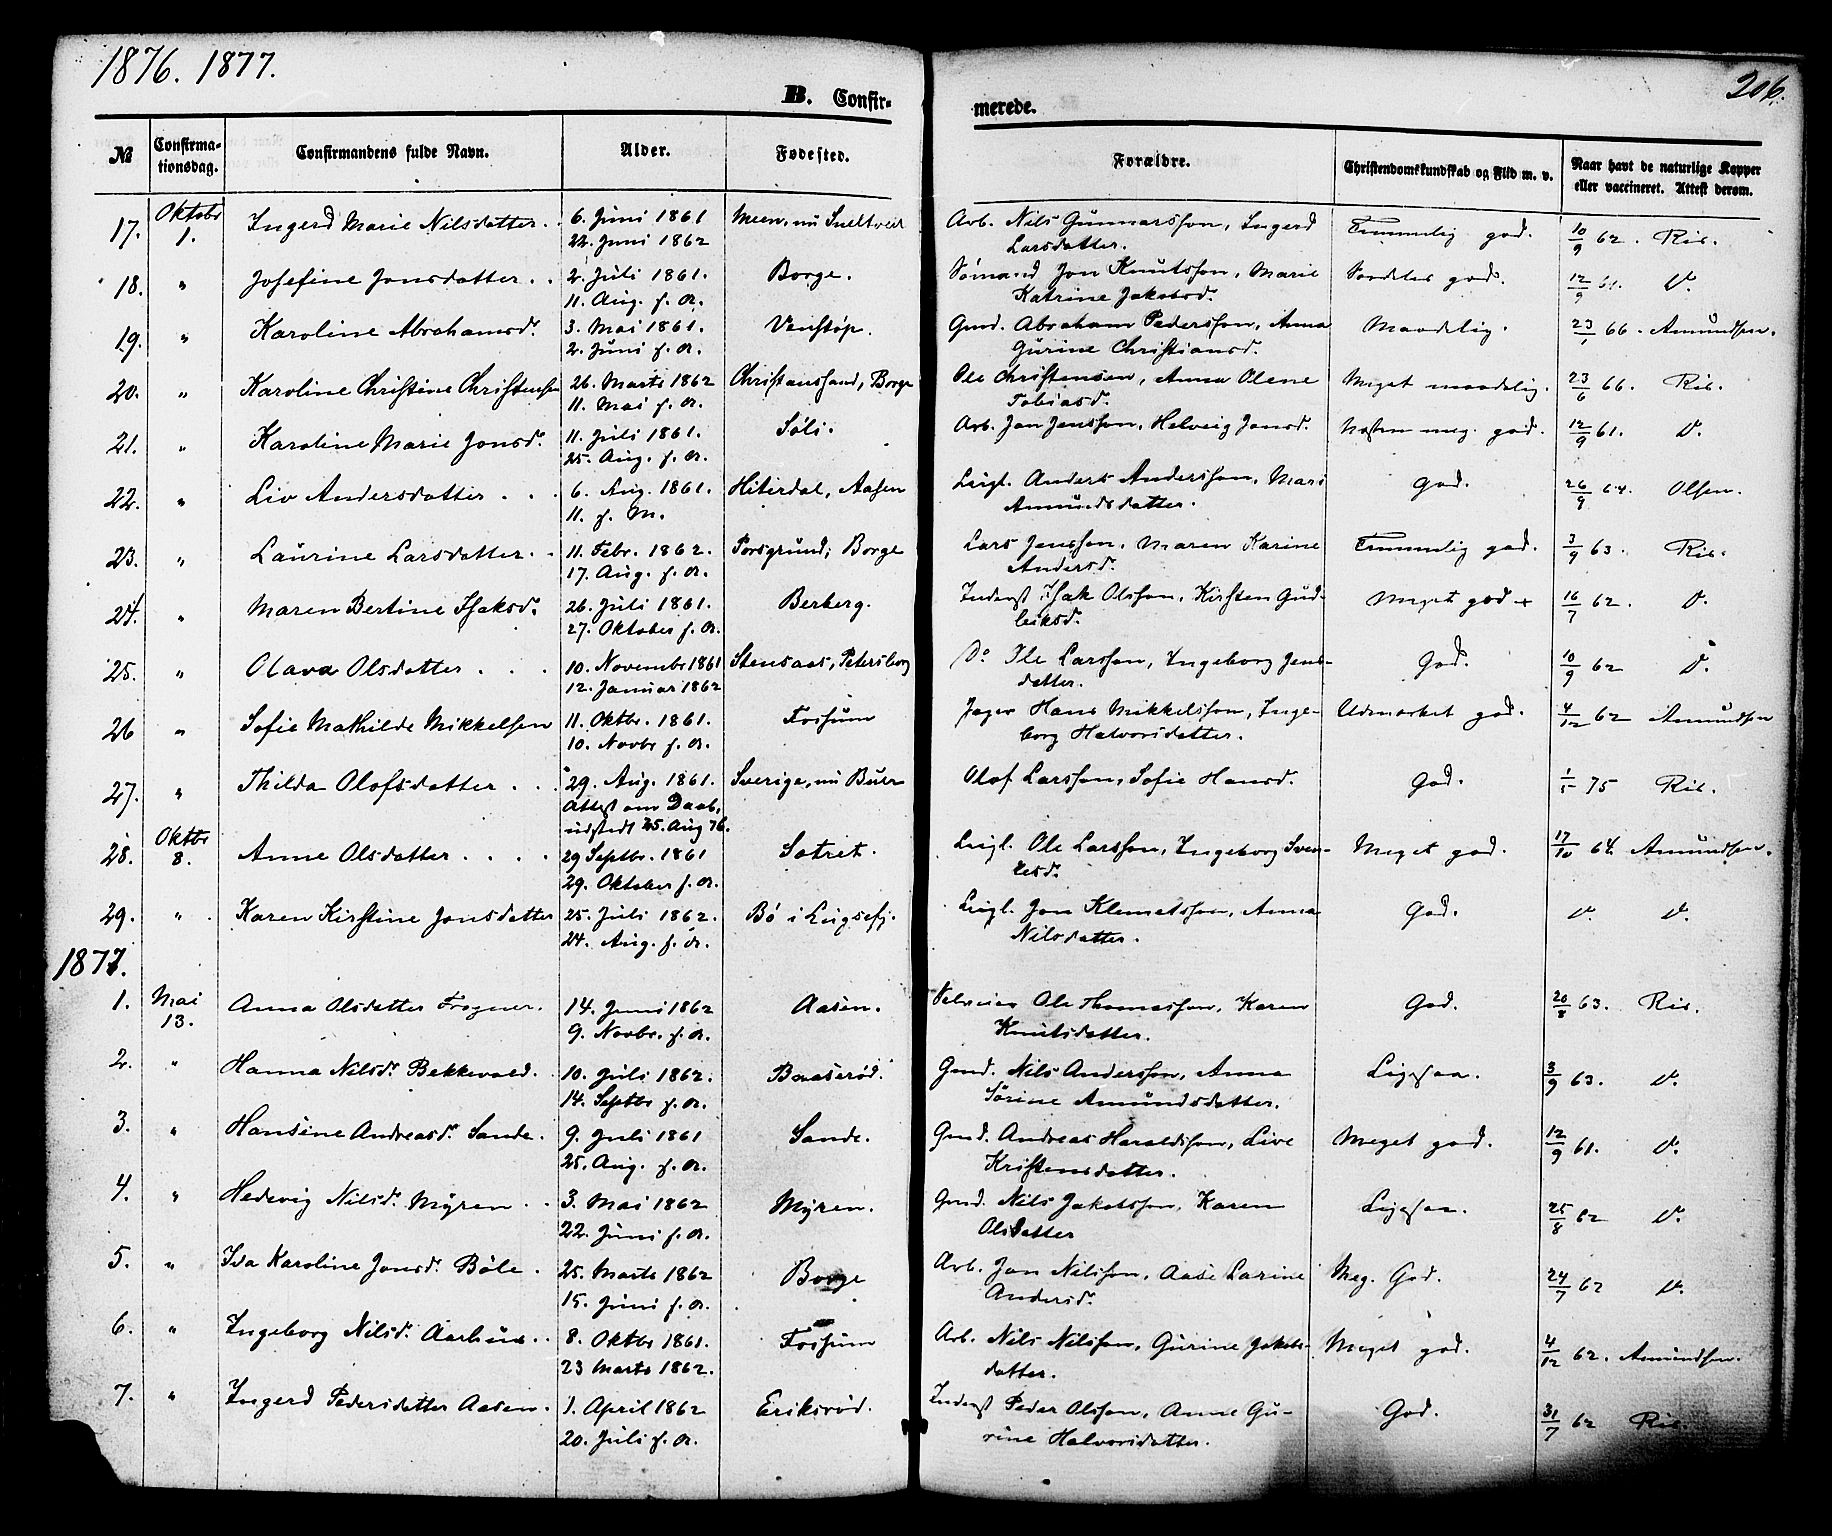 1876. 1877.
206.
B. Confir-
merede.
№ Confirma-tionsdag. Confirmandens fulde Navn. Alder. Fødested. Forældre. Christendomskundskab og Flid m. v. Naar havt de naturlige Kopper eller vaccineret. Attest derom.
17. Oktobr 1. Ingerd Marie Nilsdatter. 6. Juni 1861 Meen, nu Arb. Nils Gunnarsson, Ingerd Temmelig god. 10/9 62. Ris.
22. Juni 1862 Larsdatter.
18. " Josefine Jonsdatter . . 2. Juli 1861. Borge. Sømand Jon Knutsson, Marie Særdeles god. 12/9 61. D.
11. Aug. s. A. Katrine Jakobsd.
19. " Karoline Abrahamsd. 3. Mai 1861. Venstøp. Gmd. Abraham Pedersson, Anna Maadelig. 23/ 66. Amundsen.
2. Juni s. A. Gurine Christiansd.
20. " Karoline Christine Christensen 26. Marts 1862 Christianssand, Borge Ole Christensen, Anna Olene Meget maadelig. 23/6 66. Ris.
11. Mai s. A. Tobiasd.
21. " Karoline Marie Jonsd. 11. Juli 1861. Søli. Arb. Jon Jensson, Helveig Jonsd. Næsten meg. god. 12/9 61. D.
25. Aug. s. A.
22. " Liv Andersdatter . . . 6. Aug. 1861. Hiterdal, Aasen Leigl. Anders Andersson, Mari God. 26/9 64. Olsen.
11. s. M. Amundsdatter.
23. " Laurine Larsdatter . . 11. Febr. 1862. Porsgrund, Borge Lars Jensson, Maren Karine Temmelig god. 3/9 63. Ris.
17. Aug. s. A. Andersd.
24. " Maren Bertine Isaksd. 26. Juli 1861. Berberg. Inderst Isak Olsson, Kirsten Gud- Meget god + 16/7 62. D.
27. Oktober s. A. leiksd.
25. " Olava Olsdatter . . . 10. Novembr 1861 Stensaas, Petersborg Do Ole Larsson, Ingeborg Jens- God. 10/9 62 D.
12. Januar 1862 datter.
26 " Sofie Mathilde Mikkelsen 11. Oktbr. 1861. Fossum Jæger Hans Mikkelsson, Inge- Udmærket god. 4/12 62 Amundsen
10. Novbr s. A. borg Halvorsdatter.
27. " Thilda Olofsdatter . . . 29. Aug. 1861. Sverige, nu Buer Olof Larsson, Sofie Hansd. God. 1/5 75 Ris.
Attest om Daab,
udstedt 25. Aug 76.
28. Oktbr 8. Anne Olsdatter . . . . 29 Septbr. 1861 Sætret. Leigl. Ole Larsson, Ingeborg Sven- Meget god. 17/10 64. Amundsen.
29. Oktober s. A. kesd.
29. " Karen Kirstine Jonsdatter 25. Juli 1862. Bø i Leigl. Jon Klemetsson, Anna God. D. D.
24. Aug. s. A. Nilsdatter.
1877.
1. Mai 13. Anna Olsdatter Frogner. 14. Juni 1862 Aasen. Ole Thomasson, Karen God. 20/8 63. Ris.
9. Novbr. s. A. Knutsdatter.
2. " Hanna Nilsd. Bekkevold. 10. Juli 1862. Baaserød. Gmd. Nils Andersson, Anna Ligesaa. 3/9 63. D.
14. Septbr s. A. Sørine Amundsdatter.
3. " Hansine Andreasd. Sande. 9. Juli 1861 Sande. Gmd. Andreas Haraldsson, Live Meget god. 12/9 61. D.
25. Aug. s. A. Kristensdatter.
4. " Hedevig Nilsd. Myren . . 3. Mai 1862 Myren. Gmd. Nils Jakobsson, Karen Ligesaa. 25/8 62 D.
22. Juni s. A. Olsdatter
5. " Ida Karoline Jonsd. Bøle. 25. Marts 1862 Borge Arb. Jon Nilsson, Aase Larine Meg. God. 24/7 62 D.
15. Juni s. A. Andersd.
6. " Ingeborg Nilsd. Aarhus. . 8. Oktbr 1861. Fossum Arb. Nils Nilsson, Gurine Jakobs- Meget god. 4/12 62. Amundsen.
23 Marts 1862. datter.
7. " Ingerd Pedersdatter Aasen. 1. April 1862 Eriksrød. Inderst Peder Olsson, Anne Gu- God. 31/7 62 Ris.
20. Juli s. A. rine Halvorsdatter.